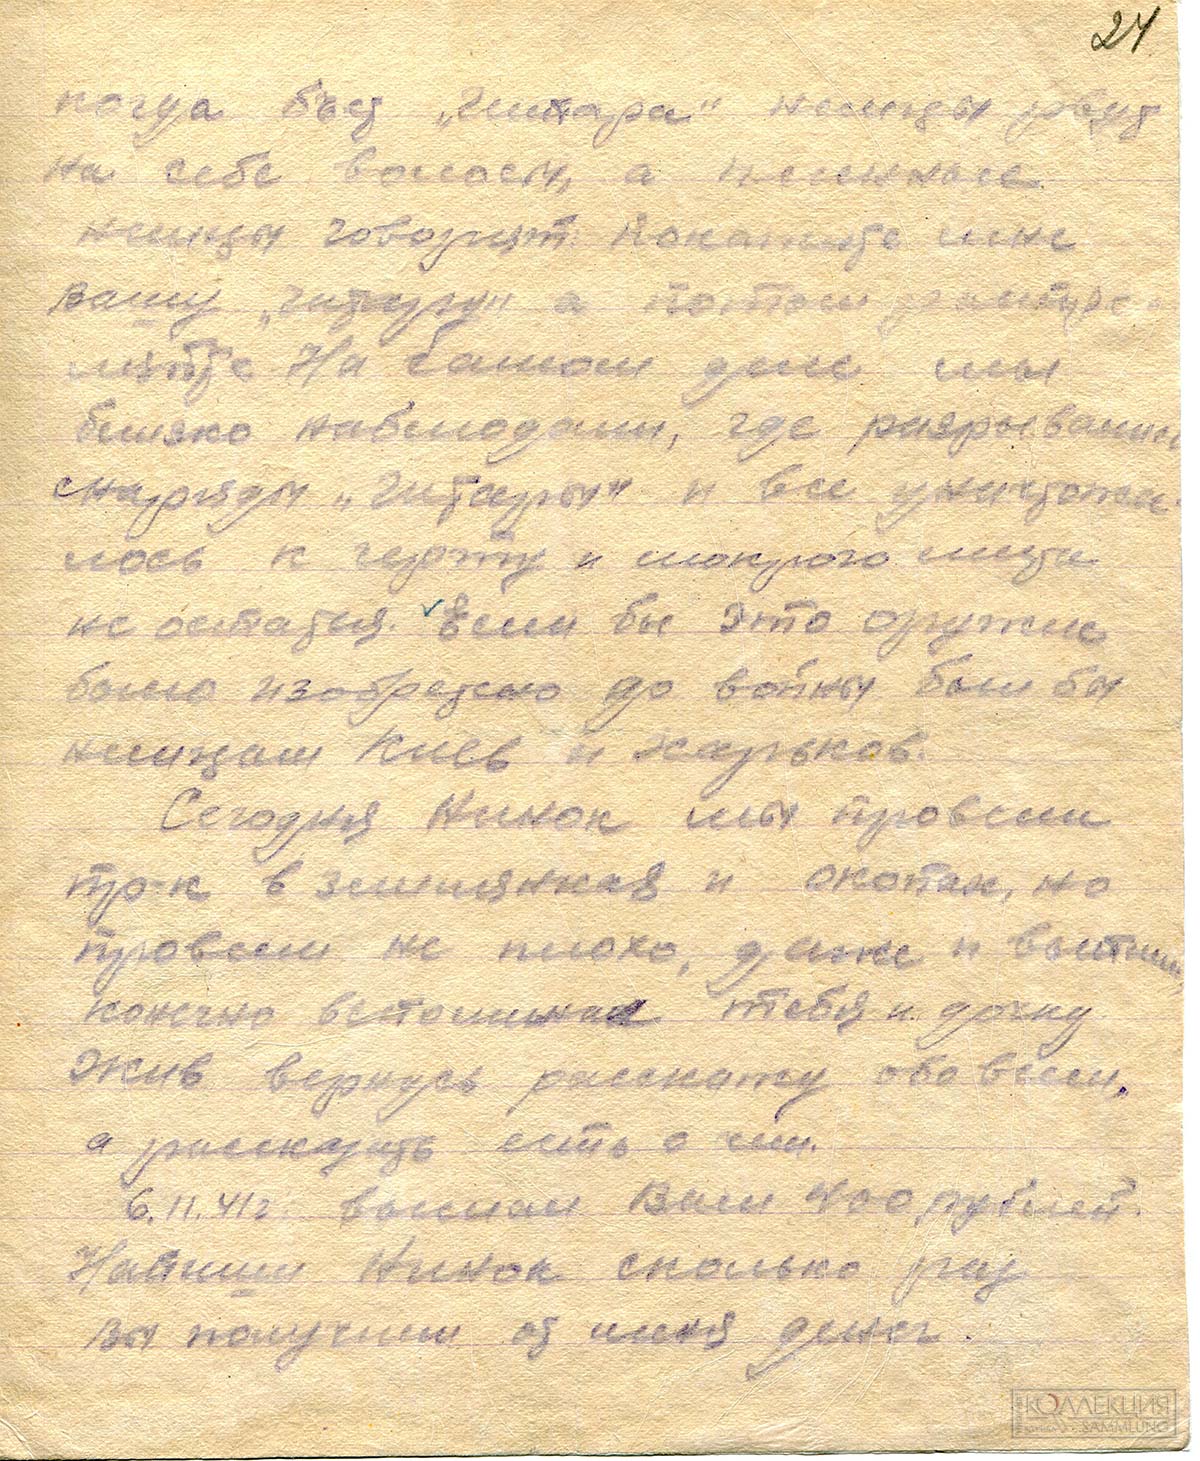 24
когда бьет „гитара" немцы рвут
на себе волосы, а пленные
немцы говорят: Покажите мне
вашу „гитару" а потом расстре-
ляйте На самом деле мы
близко наблюдали, где разрывались
снаряды „гитары" и все уничтожа-
лось к черту и мокрого места
не остается. Если бы это оружие
было изобретено до войны были бы
немцам Киев и Харьков.
Сегодня Нинок мы провели
пр-к в землянках и окопах, но
провели не плохо, даже и выпили,
конечно вспоминал тебя и дочку
Жив вернусь расскажу обо всем,
а рассказать есть о чем.
6.11.41г. выслал Вам 400 рублей.
Напиши Нинок сколько раз
вы получили от меня денег.
КОЛЛЕКЦИЯ
SAMMLUNG